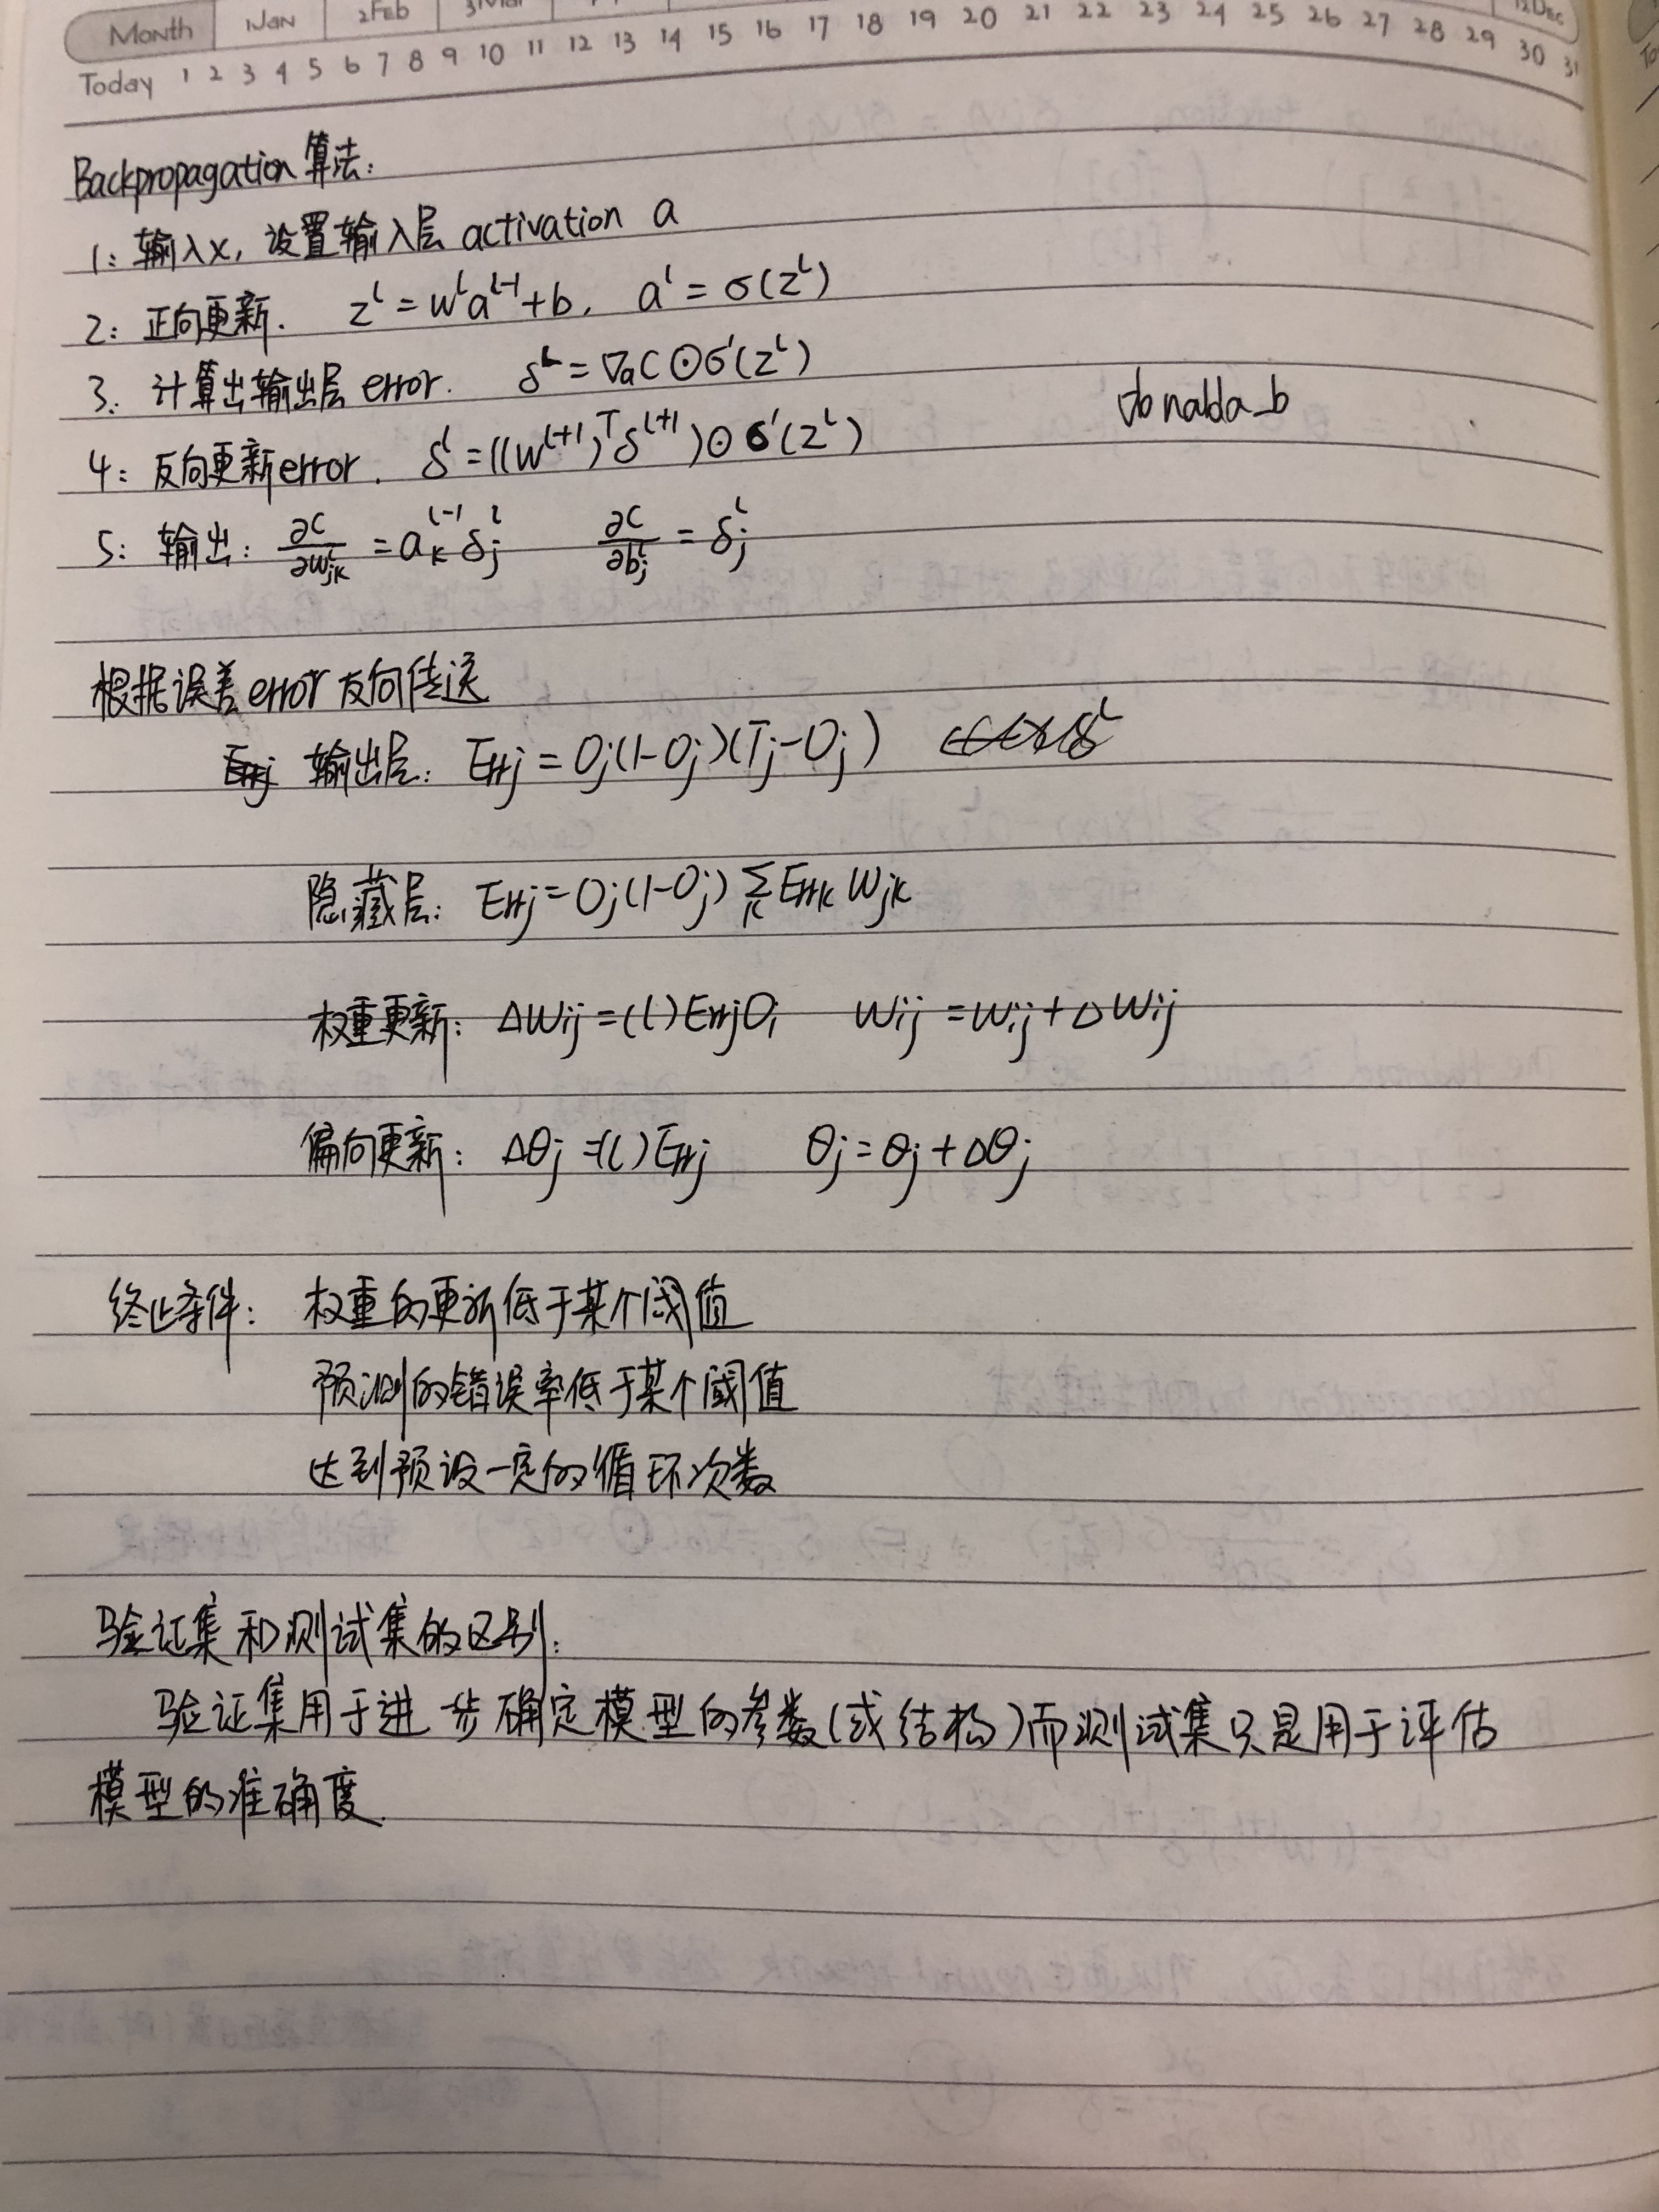 Month 1Jan 2Feb 3Mar 12Dec
Today 1 2 3 4 5 6 7 8 9 10 11 12 13 14 15 16 17 18 19 20 21 22 23 24 25 26 27 28 29 30 31
Backpropagation 算法:
1: 输入x, 设置输入层 activation a
2: 正向更新. zˡ = wˡaˡ⁻¹+b, aˡ = σ(zˡ)
3: 计算出输出层 error. δᴸ = ∇ₐC⊙σ'(zᴸ)
donalda_b
4: 反向更新error. δˡ = ((wˡ⁺¹)ᵀδˡ⁺¹)⊙σ'(zˡ)
5: 输出: ∂C/∂wˡⱼₖ = aₖˡ⁻¹δⱼˡ ∂C/∂bⱼˡ = δⱼˡ
根据误差error反向传送
输出层: Errj = Oj(1-Oj)(Tj-Oj)
隐藏层: Errj = Oj(1-Oj) ∑ₖ Errk Wjk
权重更新: ΔWij = (l)ErrjOi Wij = Wij + ΔWij
偏向更新: Δθj = (l)Errj θj = θj + Δθj
终止条件: 权重的更新低于某个阈值
预测的错误率低于某个阈值
达到预设一定的循环次数
验证集和测试集的区别:
验证集用于进一步确定模型的参数(或结构)而测试集只是用于评估
模型的准确度.